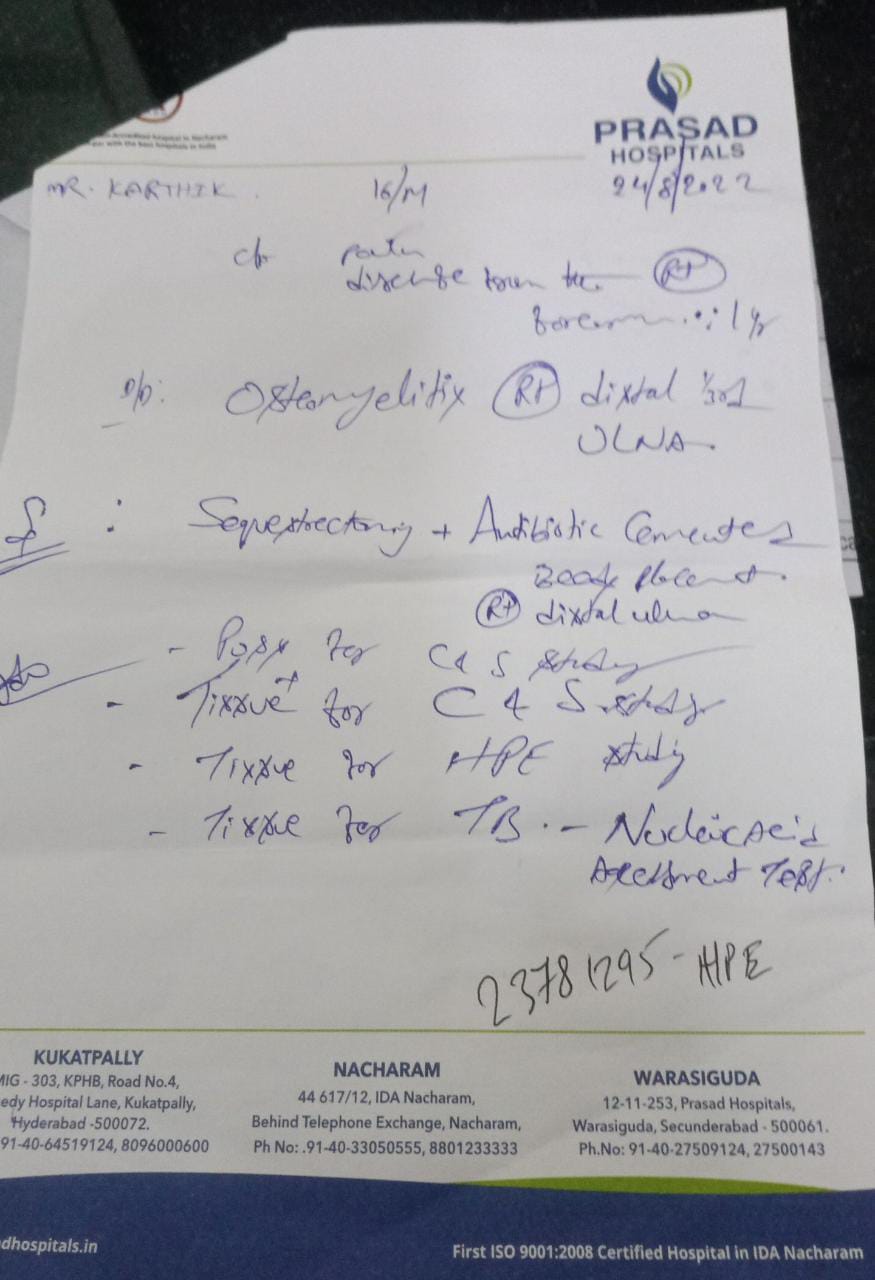 PRASAD
HOSPITALS
MR. KARTHIK. 16/M 24/8/2022
c/o
discharge from the Rt
forearm : 1 yr
Osteomyelitix Rt dixtal 1/3rd
ULNA.
: Sequextrectomy + Antibiotic Cemented
Beads placement.
Rt dixtal ulna
- Pusx for C & S study
- Tixxue for C & S study
- Tixxue for HPE study
- Tixxue for TB. - Nucleic Acid
Test.
23781295 - HPE
KUKATPALLY
MIG - 303, KPHB, Road No.4,
edy Hospital Lane, Kukatpally,
Hyderabad -500072.
91-40-64519124, 8096000600
NACHARAM
44 617/12, IDA Nacharam,
Behind Telephone Exchange, Nacharam,
Ph No: .91-40-33050555, 8801233333
WARASIGUDA
12-11-253, Prasad Hospitals,
Warasiguda, Secunderabad - 500061.
Ph.No: 91-40-27509124, 27500143
dhospitals.in
First ISO 9001:2008 Certified Hospital in IDA Nacharam